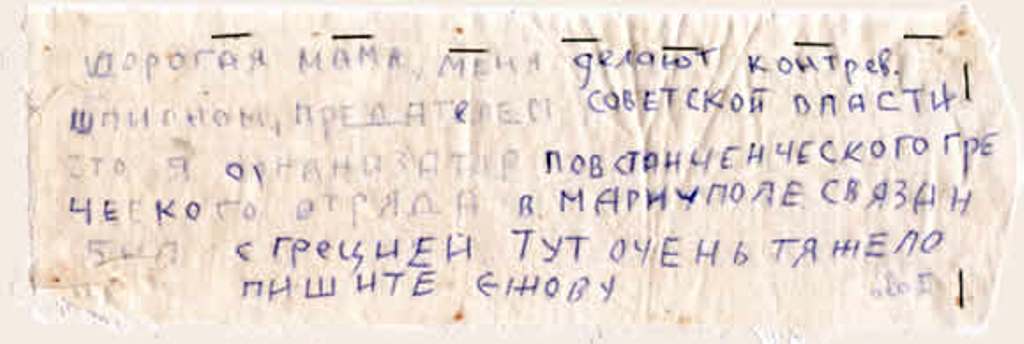 дорогая мама, меня делают контрев.
шпионом, предателем советской власти
это я организатор повстанченческого гре
ческого отряда в Мариуполе связан
был с грецией тут очень тяжело
пишите Ежову